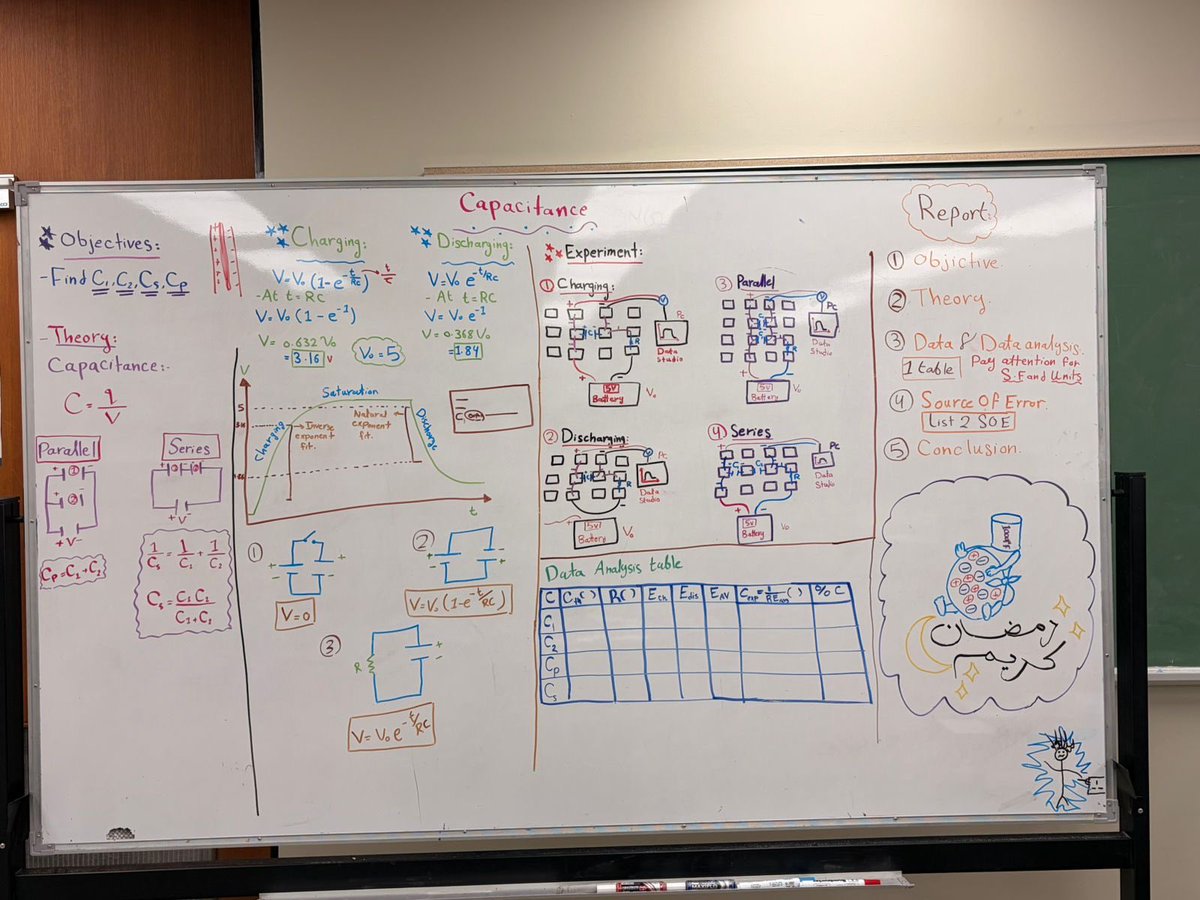 Capacitance
Objectives:
- Find C₁, C₂, Cₛ, Cₚ
- Theory:
Capacitance:-
C = q/V
Parallel
Series
Cₚ = C₁ + C₂
1/Cₛ = 1/C₁ + 1/C₂
Cₛ = C₁C₂/C₁+C₂
Charging:
V = V₀ (1 - e^-t/RC) → t/τ
- At t = RC
V = V₀ (1 - e⁻¹)
V = 0.632 V₀
= 3.16 V
V₀ = 5
Discharging:
V = V₀ e^-t/RC
- At t = RC
V = V₀ e⁻¹
V = 0.368 V₀
= 1.84
V
Saturation
5
Charging
Inverse
exponent
fit.
Natural
exponent
fit.
Discharge
t
①
V = 0
②
V = V₀ (1 - e^-t/RC)
③
R
V = V₀ e^-t/RC
Experiment:
① Charging:
V
PC
C
R
Data
Studio
5V
Battery
V₀
② Discharging:
V
PC
R
Data
Studio
5V
Battery
V₀
③ Parallel
V
PC
R
Data
Studio
5V
Battery
V₀
④ Series
PC
R
Data
Studio
5V
Battery
V₀
Data Analysis table
C Cth( ) R( ) Ech Edis EAV Cexp = 1/REAV ( ) % C
C₁
C₂
Cₚ
Cₛ
Report:
① Objictive.
② Theory.
③ Data & Data analysis.
1 table Pay attention for
S.F and Units
④ Source Of Error.
List 2 SOE
⑤ Conclusion.
رمضان
كريم